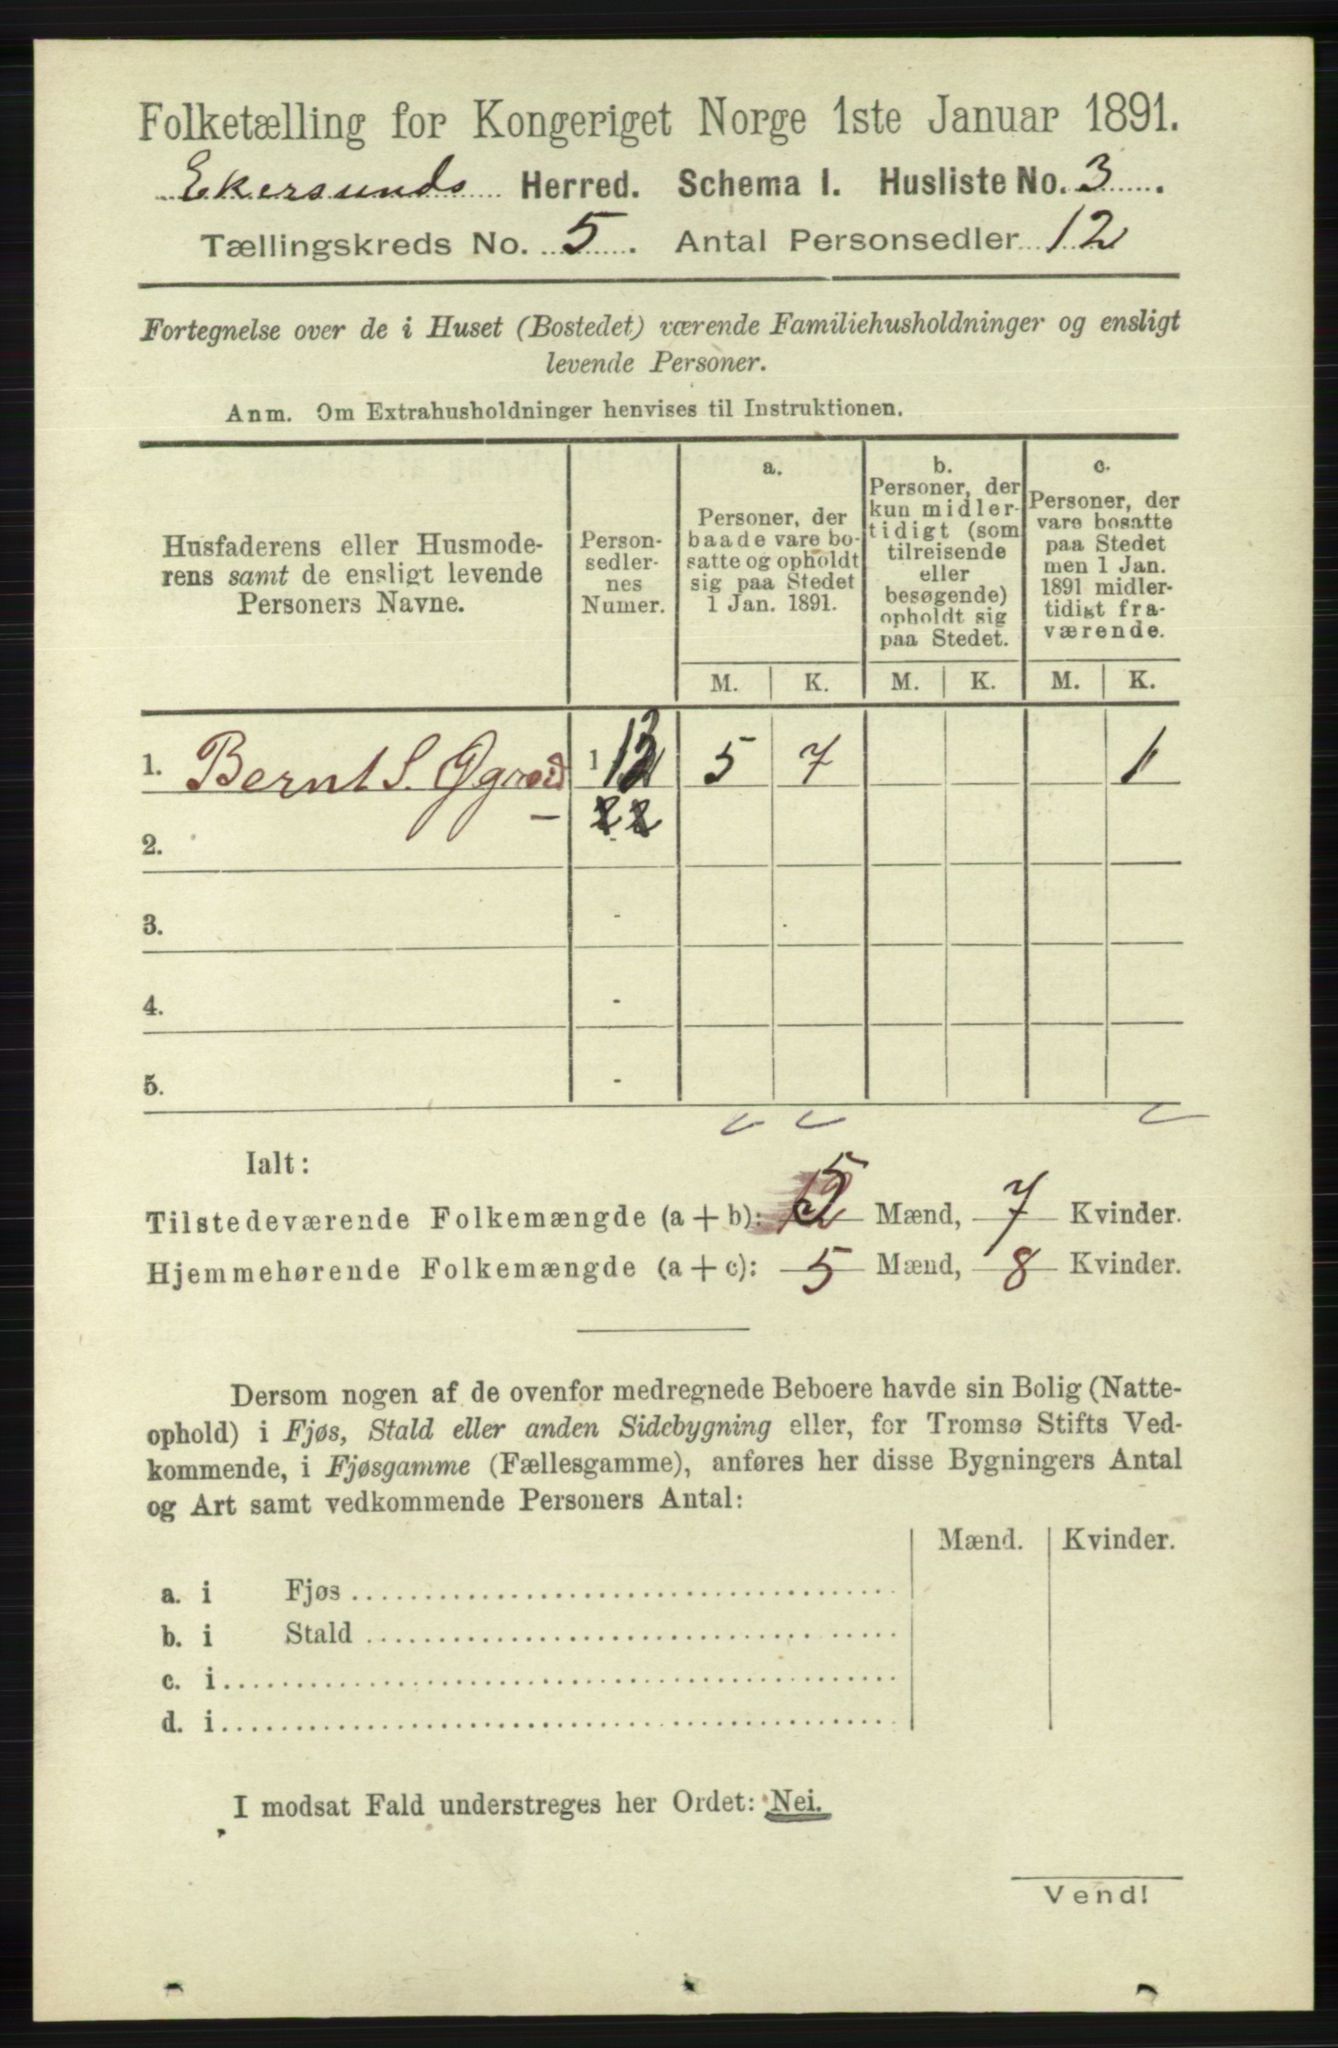 Folketælling for Kongeriget Norge 1ste Januar 1891.
Ekersunds Herred. Schema I. Husliste No. 3.
Tællingskreds No. 5. Antal Personsedler 12
Fortegnelse over de i Huset (Bostedet) værende Familiehusholdninger og ensligt
levende Personer.
Anm. Om Extrahusholdninger henvises til Instruktionen.
Husfaderens eller Husmode-
rens samt de ensligt levende
Personers Navne.
Person-
sedler-
nes
Numer.
a.
Personer, der
baade vare bo-
satte og opholdt
sig paa Stedet
1 Jan. 1891.
b.
Personer, der
kun midler-
tidigt (som
tilreisende
eller
besøgende)
opholdt sig
paa Stedet.
c.
Personer, der
vare bosatte
paa Stedet
men 1 Jan.
1891 midler-
tidigt fra-
værende.
M. K. M. K. M. K.
1. Bernt S. 1 5 7 1
2.
3. -
4. -
5. -
Ialt:
Tilstedeværende Folkemængde (a + b): 5 Mænd, 7 Kvinder.
Hjemmehørende Folkemængde (a + c): 5 Mænd, 8 Kvinder.
Dersom nogen af de ovenfor medregnede Beboere havde sin Bolig (Natte-
ophold) i Fjøs, Stald eller anden Sidebygning eller, for Tromsø Stifts Ved-
kommende, i Fjøsgamme (Fællesgamme), anføres her disse Bygningers Antal
og Art samt vedkommende Personers Antal:
Mænd. Kvinder.
a. i Fjøs
b. i Stald
c. i
d. i
I modsat Fald understreges her Ordet: Nei.
Vend!